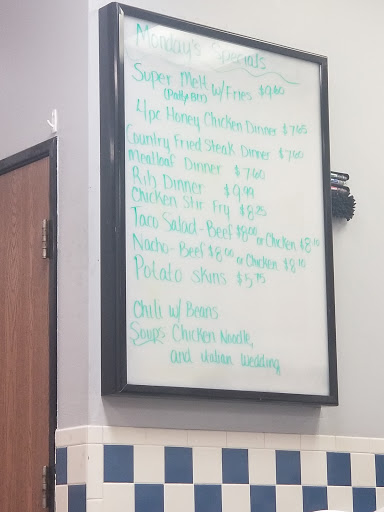 Monday's Specials
Super Melt w/Fries $9.60
(Patty Bcn)
4pc Honey Chicken Dinner $7.65
Country Fried Steak Dinner $7.60
Meatloaf Dinner $7.60
Rib Dinner $9.99
Chicken Stir Fry $8.25
Taco Salad-Beef $8.00 or Chicken $8.10
Nacho-Beef $8.00 or Chicken $8.10
Potato skins $5.75
Chili w/ Beans
Soups: Chicken Noodle,
and italian wedding